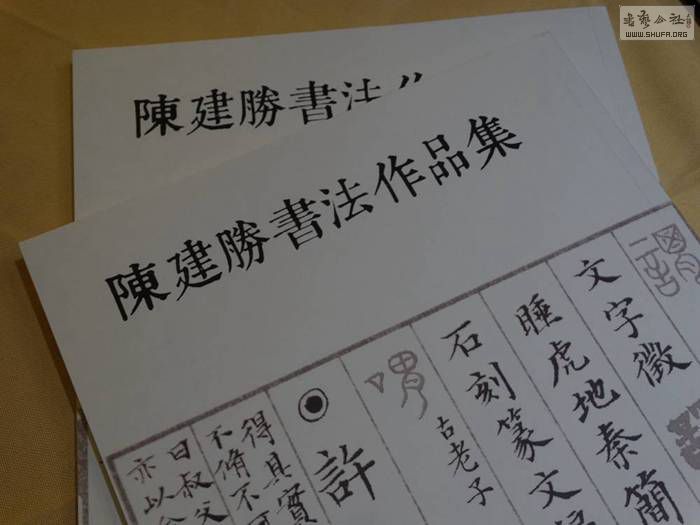 書藝公社
WWW.SHUFA.ORG
陳建勝書法
陳建勝書法作品集
文字徵
睡虎地秦簡
石刻篆文編
古老子
許
得其實
不脩不可
曰叔父
亦以